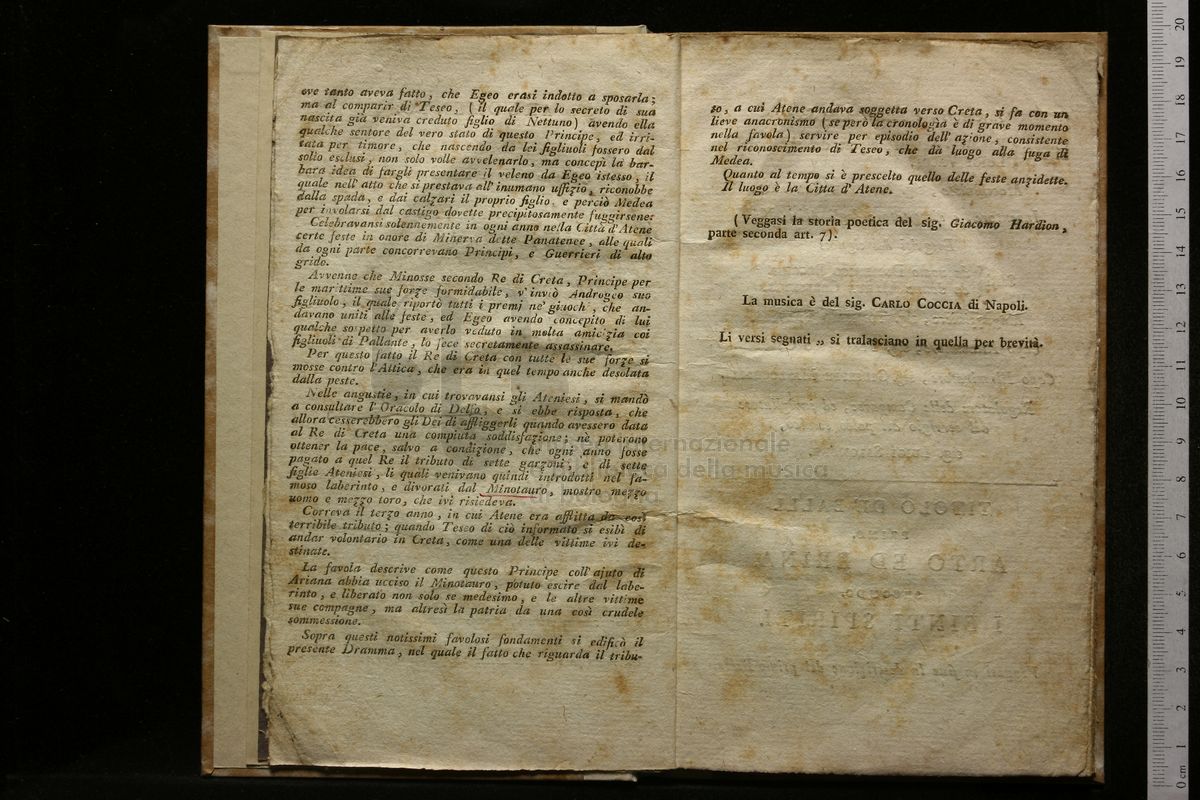 ove tanto aveva fatto, che Egeo erasi indotto a sposarla;
ma al comparir di Teseo, (il quale per lo secreto di sua
nascita già veniva creduto figlio di Nettuno) avendo ella
qualche sentore del vero stato di questo Principe, ed irri-
tata per timore, che nascendo da lei figliuoli fossero dal
soglio esclusi, non solo volle avvelenarlo, ma concepì la bar-
bara idea di fargli presentare il veleno da Egeo istesso, il
quale nell' atto che si prestava all' inumano uffizio, riconobbe
dalla spada, e dai calzari il proprio figlio, e perciò Medea
per involarsi dal castigo dovette precipitosamente fuggirsene:
Celebravansi solennemente in ogni anno nella Città d'Atene
certe feste in onore di Minerva dette Panatenee, alle quali
da ogni parte concorrevano Principi, e Guerrieri di alto
grido.
Avvenne che Minosse secondo Re di Creta, Principe per
le marittime sue forze formidabile, v' inviò Androgeo suo
figliuolo, il quale riportò tutti i premj ne' giuochi, che an-
davano uniti alle feste, ed Egeo avendo concepito di lui
qualche sospetto per averlo veduto in molta amicizia coi
figliuoli di Pallante, lo fece secretamente assassinare.
Per questo fatto il Re di Creta con tutte le sue forze si
mosse contro l'Attica, che era in quel tempo anche desolata
dalla peste.
Nelle angustie, in cui trovavansi gli Ateniesi, si mandò
a consultare l' Oracolo di Delfo, e si ebbe risposta, che
allora cesserebbero gli Dei di affliggerli quando avessero data
al Re di Creta una compiuta soddisfazione; nè poterono
ottener la pace, salvo a condizione, che ogni anno fosse
pagato a quel Re il tributo di sette garzoni, e di sette
figlie Ateniesi, li quali venivano quindi introdotti nel fa-
moso laberinto, e divorati dal Minotauro, mostro mezzo
uomo e mezzo toro, che ivi risiedeva.
Correva il terzo anno, in cui Atene era afflitta da così
terribile tributo; quando Teseo di ciò informato si esibì di
andar volontario in Creta, come una delle vittime ivi de-
stinate.
La favola descrive come questo Principe coll' ajuto di
Ariana abbia ucciso il Minotauro, potuto escire dal labe-
rinto, e liberato non solo se medesimo, e le altre vittime
sue compagne, ma altresì la patria da una così crudele
sommessione.
Sopra questi notissimi favolosi fondamenti si edificò il
presente Dramma, nel quale il fatto che riguarda il tribu-
to, a cui Atene andava soggetta verso Creta, si fa con un
lieve anacronismo (se però la cronologia è di grave momento
nella favola) servire per episodio dell' azione, consistente
nel riconoscimento di Teseo, che dà luogo alla fuga di
Medea.
Quanto al tempo si è prescelto quello delle feste anzidette.
Il luogo è la Città d' Atene.
(Veggasi la storia poetica del sig. Giacomo Hardion,
parte seconda art. 7).
La musica è del sig. CARLO COCCIA di Napoli.
Li versi segnati „ si tralasciano in quella per brevità.